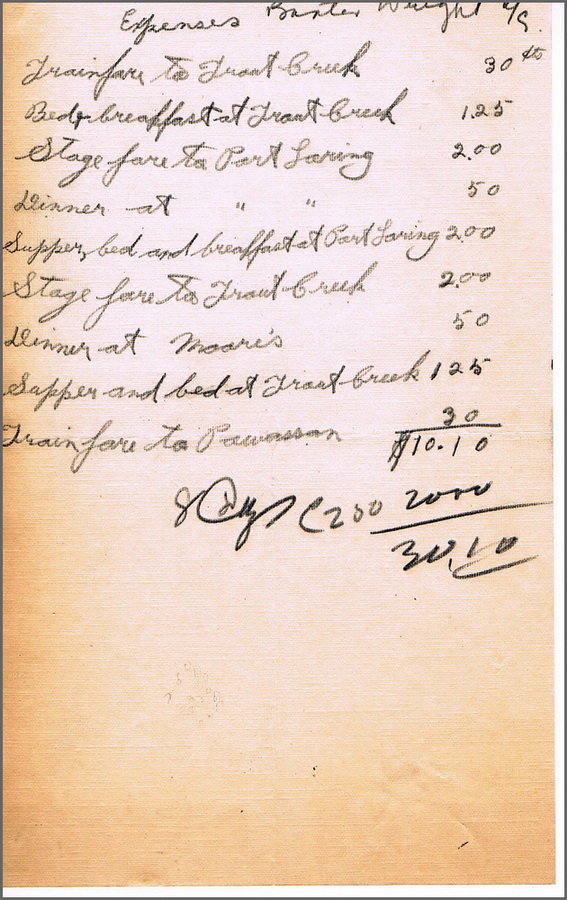 Expenses Baxter Wright a/c
Trainfare to Trout Creek 30 cts
Bed & breakfast at Trout Creek 1.25
Stage fare to Port Loring 2.00
Dinner at " " 50
Supper, bed and breakfast at Port Loring 2.00
Stage fare to Trout Creek 2.00
Dinner at Moore's 50
Supper and bed at Trout Creek 1 25
Train fare to Powassan 30
$10.10
8 Days @ 250 2000
30.10